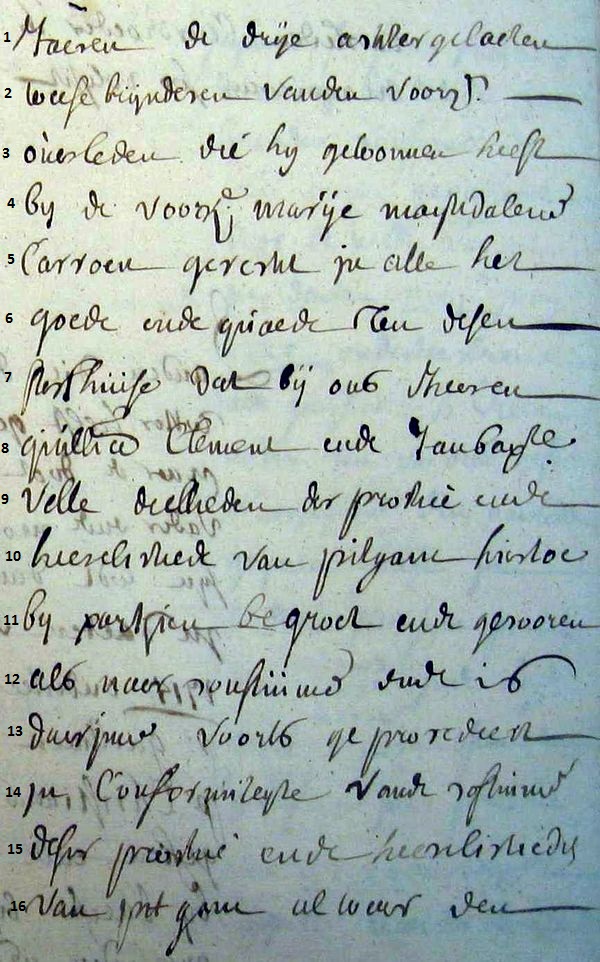 1 Jaeren de drije achtergelaeten
2 weese kijnderen vanden voors.
3 overleden die hij gewonnen heeft
4 bij de voors. marije magdalene
5 Carroen gerecht in alle het
6 goede ende quaede ten desen
7 sterfhuise dat bij ons heeren
8 guill. Clement ende Jan bapte
9 Velle deelheden der prochie ende
10 heerelichede van pitgam hiertoe
11 bij partijen begroet ende gecooren
12 als naer costuume ende is
13 daer inne voorts geprocedeert
14 in Conformiteyte vande costuume
15 deser prochie ende heerelichede
16 van pitgam alwaer den